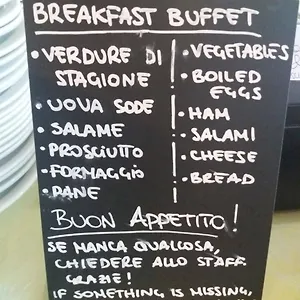 BREAKFAST BUFFET
• VERDURE DI
STAGIONE
• UOVA SODE
• SALAME
• PROSCIUTTO
• FORMAGGIO
• PANE
• VEGETABLES
• BOILED
EGGS
• HAM
• SALAMI
• CHEESE
• BREAD
BUON APPETITO!
SE MANCA QUALCOSA,
CHIEDERE ALLO STAFF.
GRAZIE!
IF SOMETHING IS MISSING,